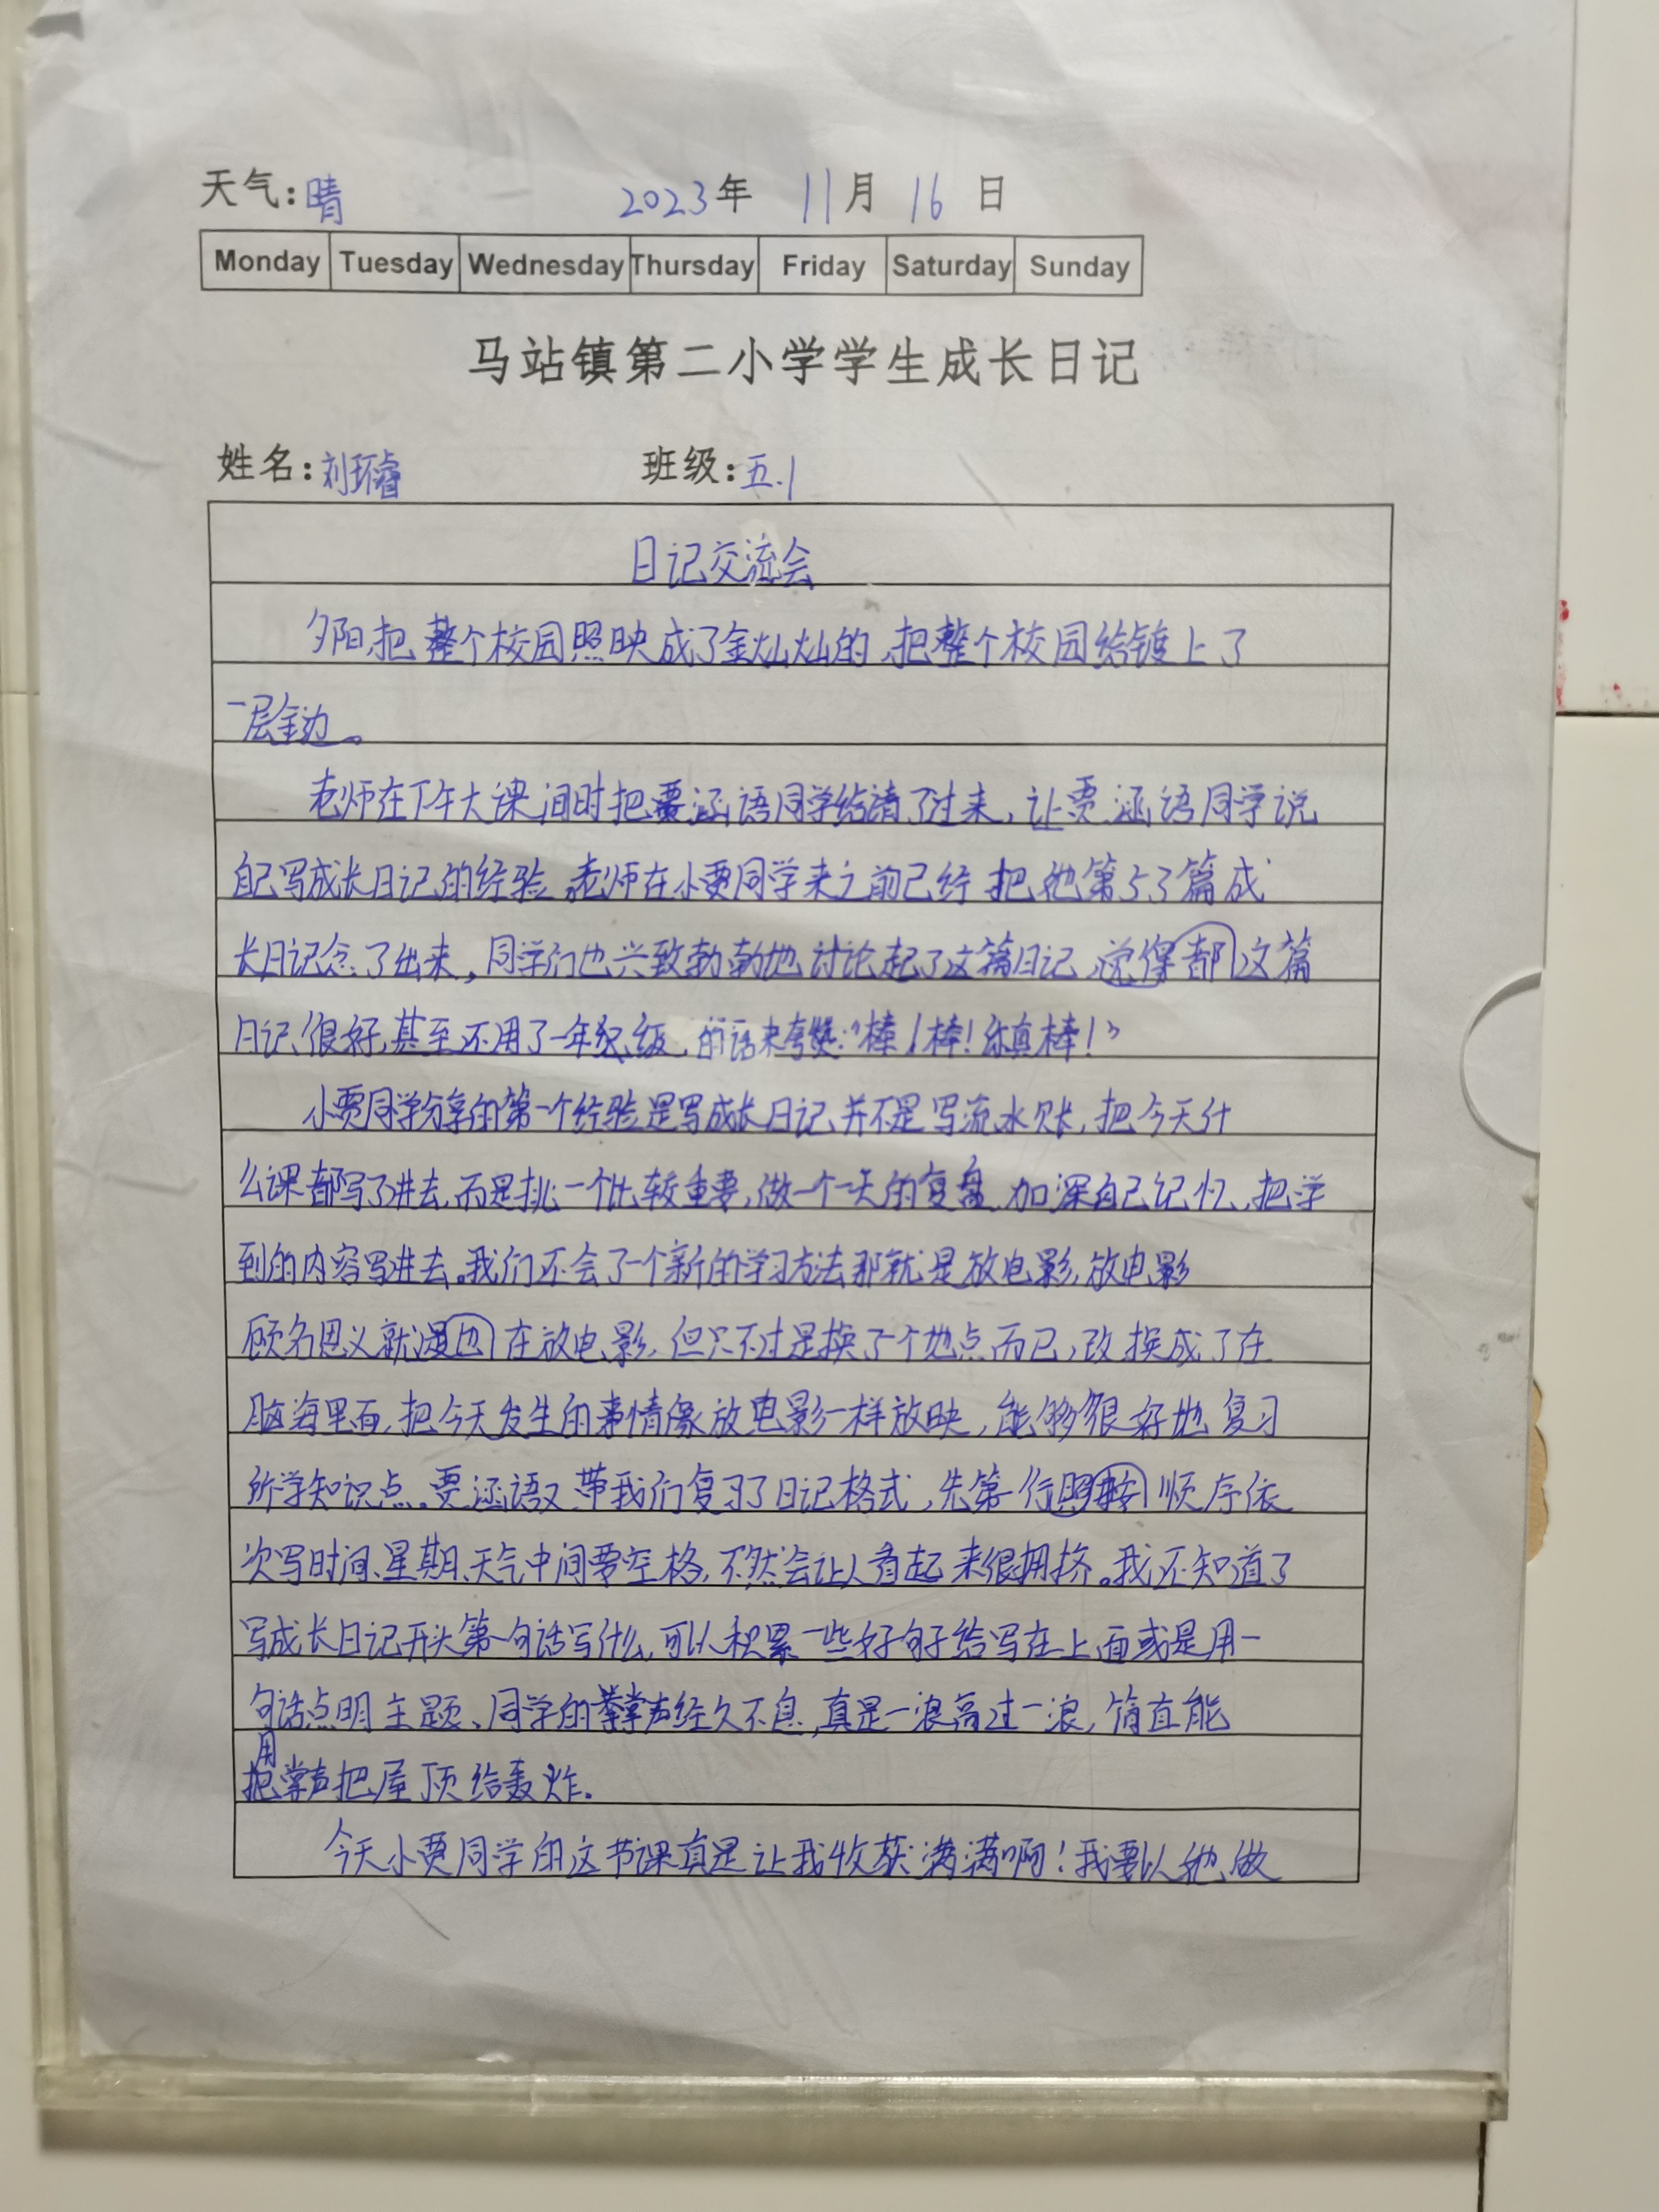 天气:晴 2023年 11月 16日
Monday Tuesday Wednesday Thursday Friday Saturday Sunday
马站镇第二小学学生成长日记
姓名:刘环睿 班级:五.1
日记交流会
夕阳把整个校园照映成了金灿灿的,把整个校园给镀上了
一层金边。
老师在下午大课间时把贾涵语同学给请了过来,让贾涵语同学说
自己写成长日记的经验,老师在小贾同学来之前已经把她第53篇成
长日记念了出来,同学们也兴致勃勃地讨论起了这篇日记,觉得都这篇
日记很好,甚至还用了一年纪级,的话来夸赞:“棒!棒!你真棒!”
小贾同学分享的第一个经验是写成长日记,并不是写流水账,把今天什
么课都写了进去,而是挑一个比较重要,做一个一天的复盘,加深自己记忆,把学
到的内容写进去。我们还会了一个新的学习方法那就是放电影,放电影
顾名思义就是也在放电影,但只不过是换了个地点而已,改换成了在
脑海里面,把今天发生的事情像放电影一样放映,能够很好地复习
所学知识点。贾涵语又带我们复习了日记格式,先第一行照按顺序依
次写时间、星期、天气中间要空格,不然会让人看起来很拥挤。我还知道了
写成长日记开头第一句话写什么,可以积累一些好句子给写在上面或是用一
句话点明主题、同学的掌声经久不息,真是一浪高过一浪,简直能
用掌声把屋顶给轰炸.
今天小贾同学的这节课真是让我收获满满啊!我要以她做